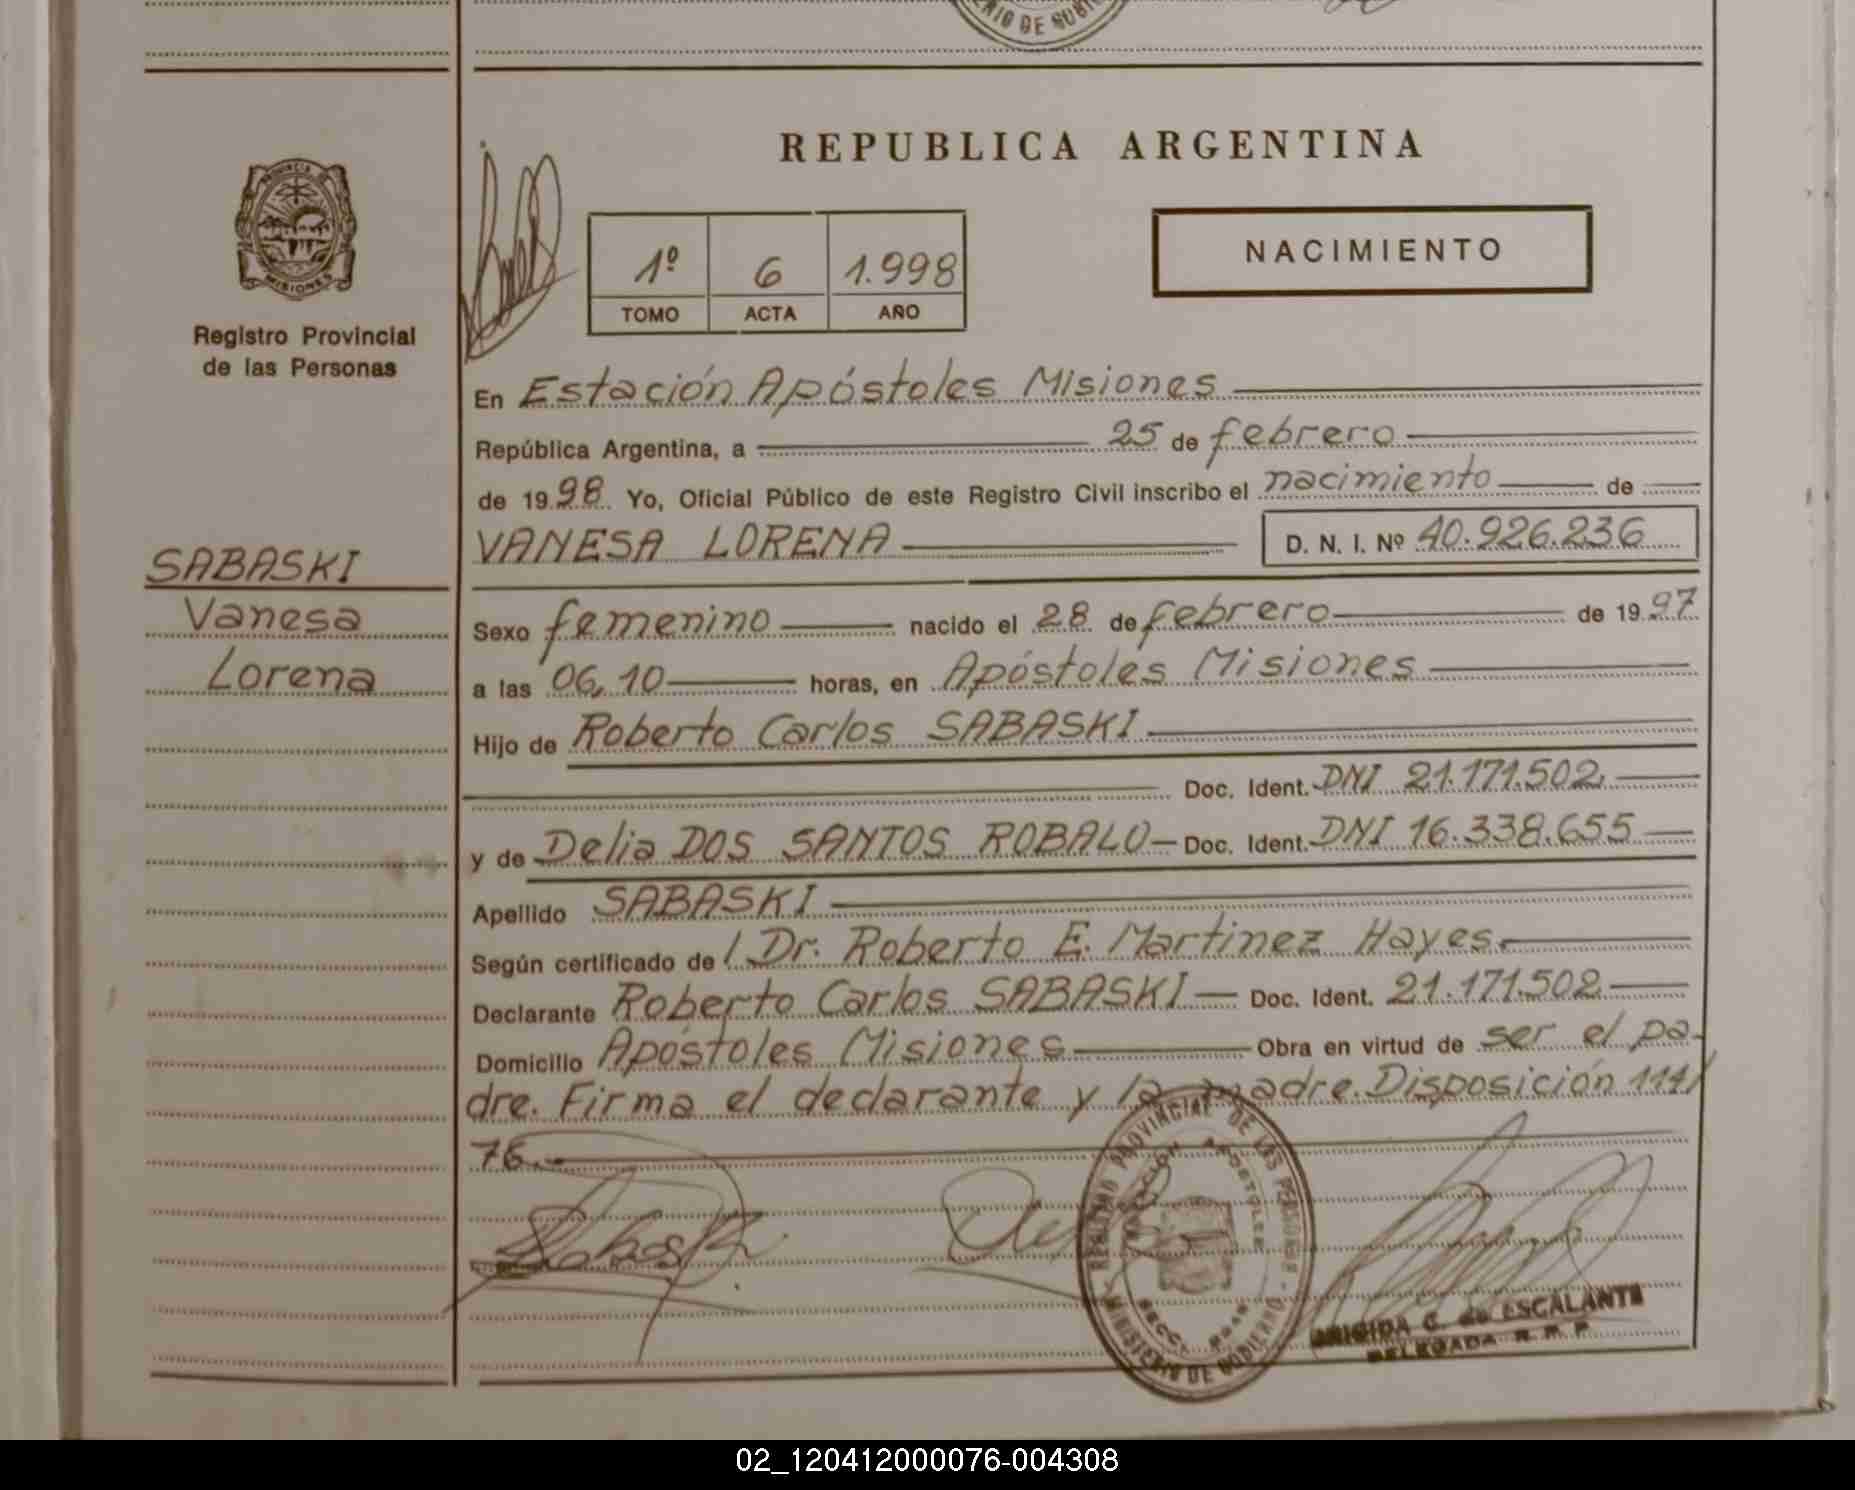 PROVINCIA DE
MISIONES
Registro Provincial
de las Personas
SABASKI
Vanesa
Lorena
REPUBLICA ARGENTINA
1º 6 1.998
TOMO ACTA AÑO
NACIMIENTO
En Estación Apóstoles Misiones
República Argentina, a 25 de febrero
de 1998 Yo, Oficial Público de este Registro Civil inscribo el nacimiento de
VANESA LORENA D. N. I. Nº 40.926.236
Sexo femenino nacido el 28 de febrero de 1997
a las 06,10 horas, en Apóstoles Misiones
Hijo de Roberto Carlos SABASKI
Doc. Ident. DNI 21.171.502
y de Delia DOS SANTOS ROBALO Doc. Ident. DNI 16.338.655
Apellido SABASKI
Según certificado de l Dr. Roberto E. Martinez Hayes.
Declarante Roberto Carlos SABASKI Doc. Ident. 21.171.502
Domicilio Apóstoles Misiones Obra en virtud de ser el pa-
dre. Firma el declarante y la madre. Disposición 111/
76.-
REGISTRO PROVINCIAL DE LAS PERSONAS
MINISTERIO DE GOBIERNO
ESTACION APOSTOLES
BRIGIDA C. de ESCALANTE
DELEGADA R. P. P.
02_120412000076-004308